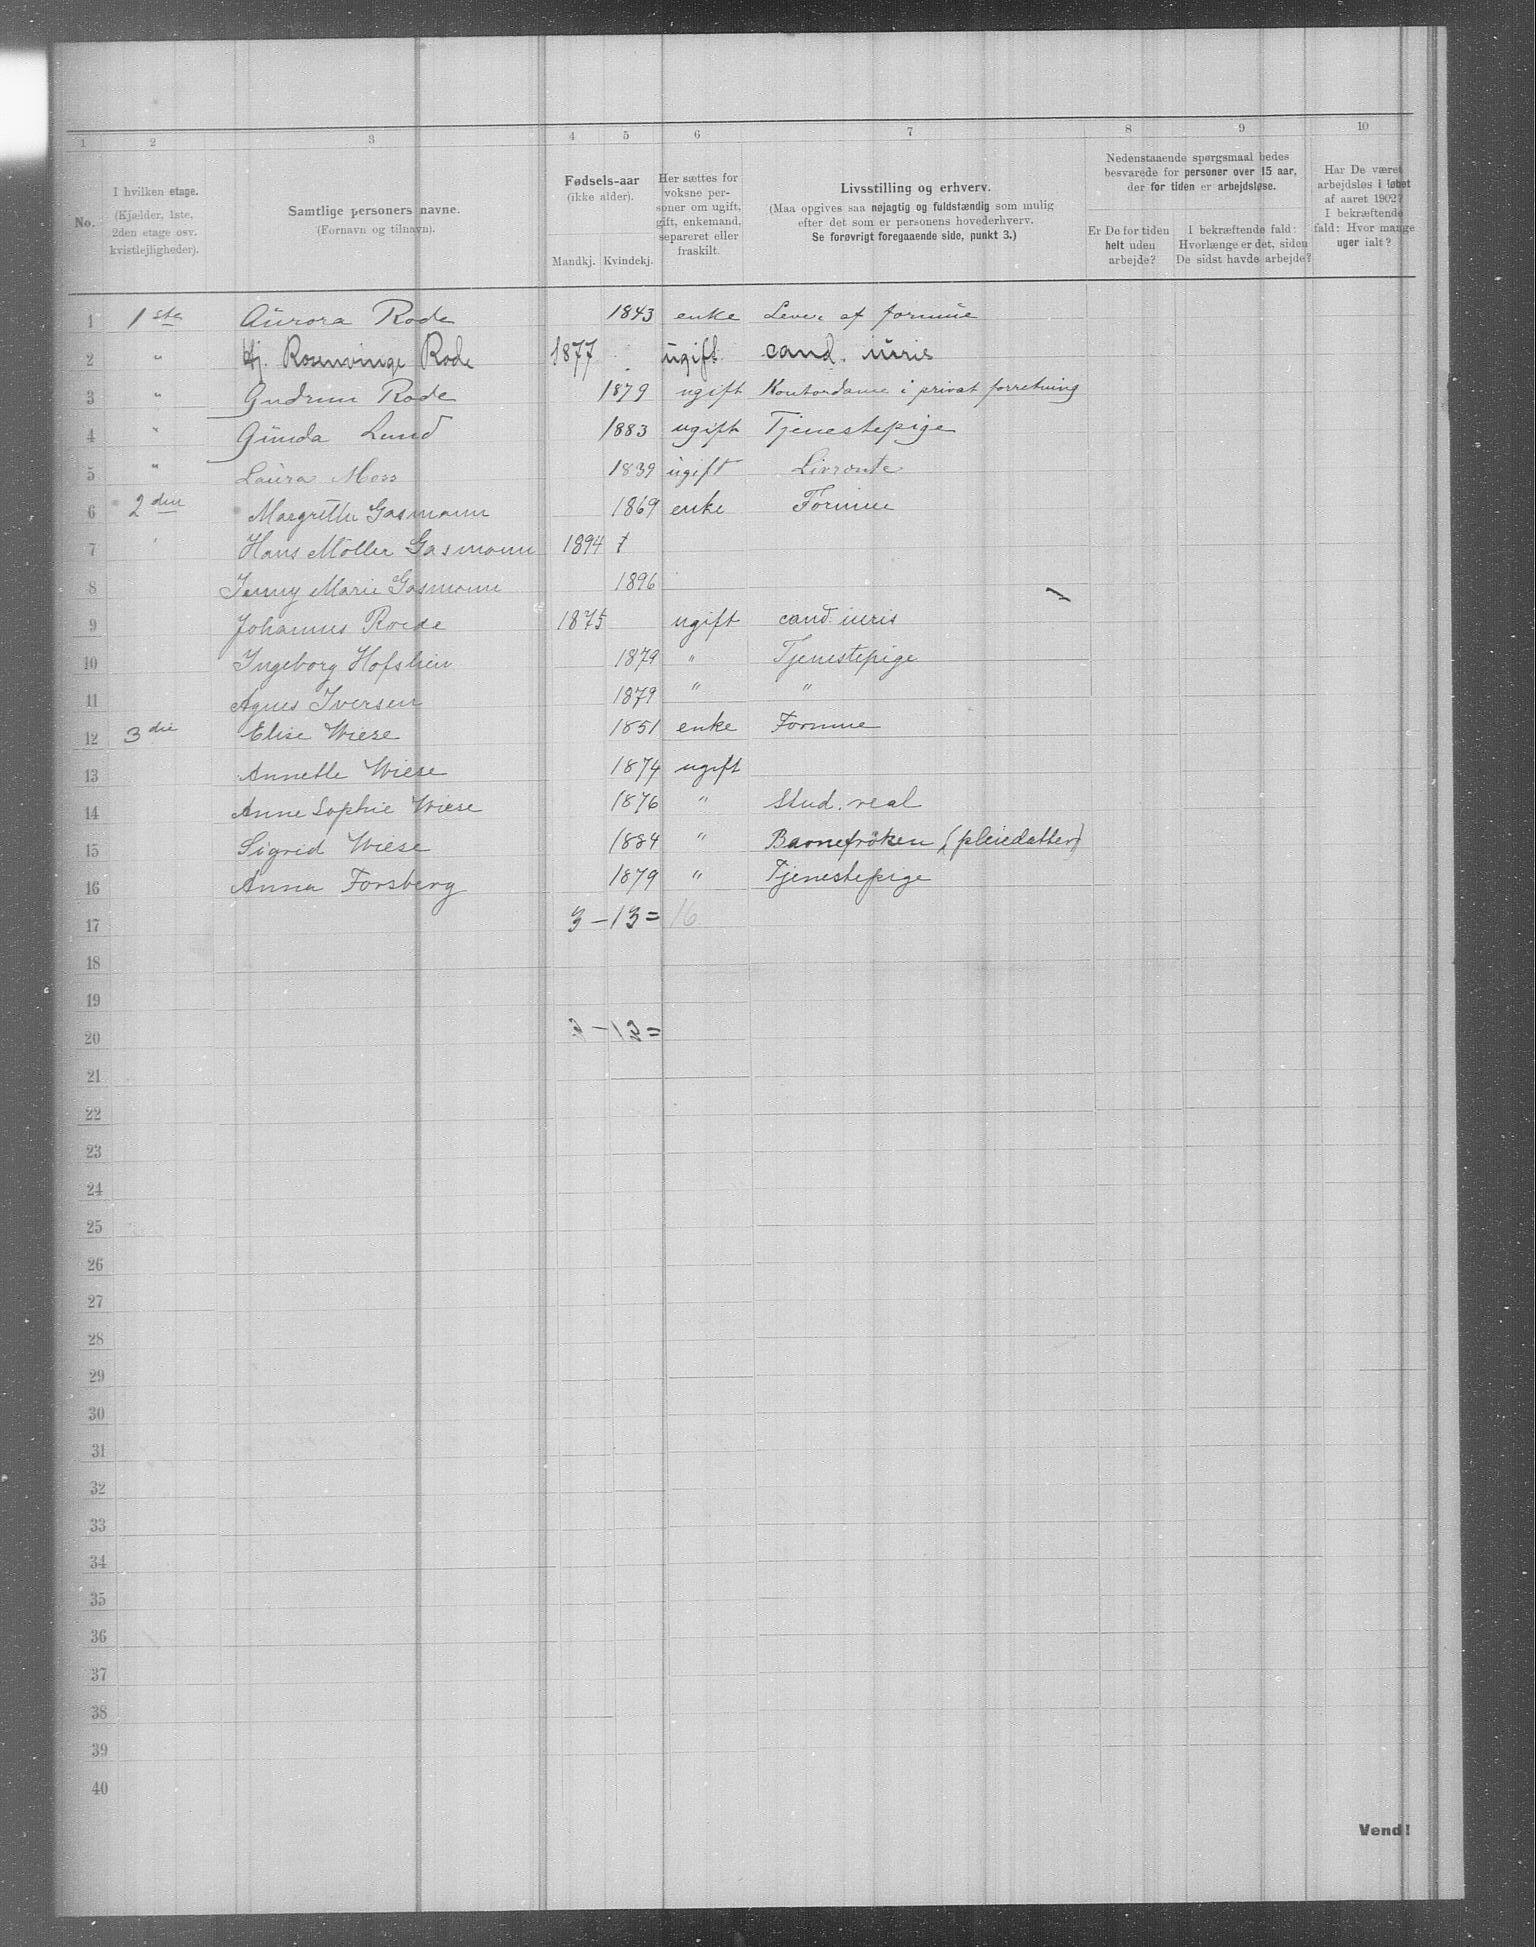 1 2 3 4 5 6 7 8 9 10
No.
I hvilken etage.
(Kjælder, 1ste,
2den etage osv.
kvistlejligheder).
Samtlige personers navne.
(Fornavn og tilnavn).
Fødsels-aar
(ikke alder).
Mandkj. Kvindekj.
Her sættes for
voksne per-
soner om ugift,
gift, enkemand,
separeret eller
fraskilt.
Livsstilling og erhverv.
(Maa opgives saa nøjagtig og fuldstændig som mulig
efter det som er personens hovederhverv.
Se forøvrigt foregaaende side, punkt 3.)
Nedenstaaende spørgsmaal bedes
besvarede for personer over 15 aar,
der for tiden er arbejdsløse.
Er De for tiden
helt uden
arbejde?
I bekræftende fald:
Hvorlænge er det, siden
De sidst havde arbejde?
Har De været
arbejdsløs i løbet
af aaret 1902?
I bekræftende
fald: Hvor mange
uger ialt?
1 1ste Aurora Rode 1843 enke Lever af formue
2 " Hj. Rosenvinge Rode 1877 ugift cand. iuris
3 " Gudrun Rode 1879 ugift Kontordame i privat forretning
4 " Gunda Lund 1883 ugift Tjenestepige
5 " Laura Moss 1839 ugift Livrente
6 2den Margrethe Gasmann 1869 enke Formue
7 " Hans Møller Gasmann 1894 +
8 Jenny Marie Gasmann 1896
9 Johannes Roede 1875 ugift cand. iuris
10 Ingeborg Hofstien 1879 " Tjenestepige
11 Agnes Iversen 1879 " "
12 3die Elise Wiese 1851 enke Formue
13 Annette Wiese 1874 ugift
14 Anne Sophie Wiese 1876 " Stud. real
15 Sigrid Wiese 1884 " Barnefröken (pleiedatter)
16 Anna Forsberg 1879 " Tjenestepige
17 3 – 13 = 16
18
19
20 3 – 13 =
21
22
23
24
25
26
27
28
29
30
31
32
33
34
35
36
37
38
39
40
Vend!